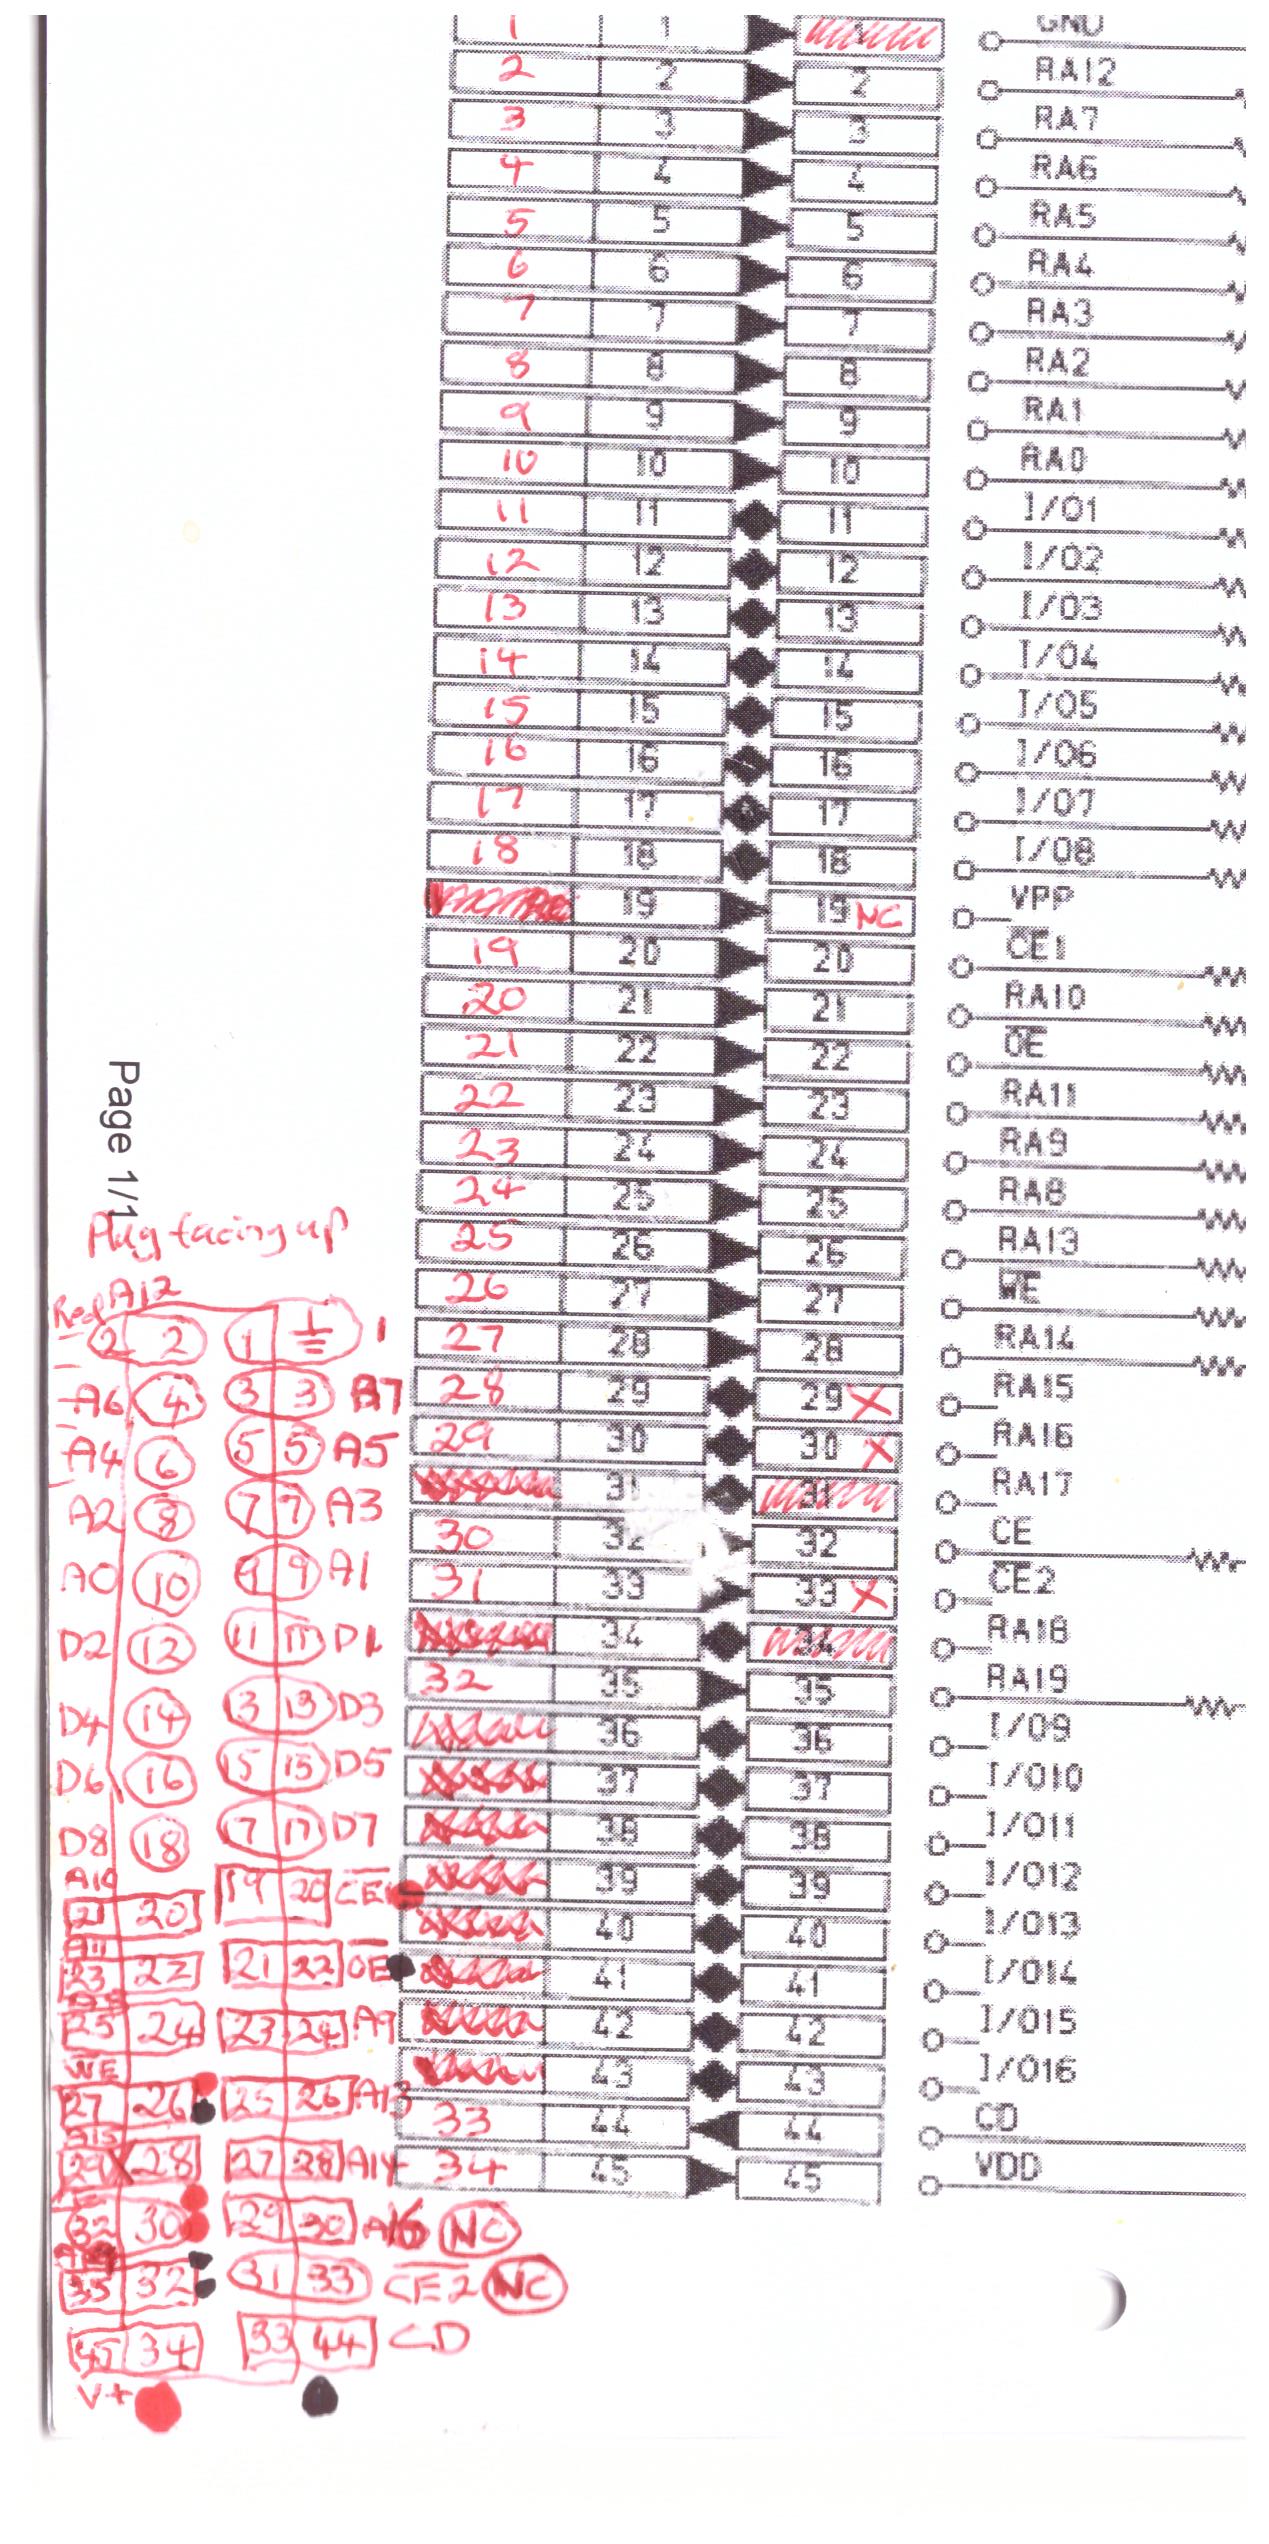 1 1 GND
2 2 2 RA12
3 3 3 RA7
4 4 4 RA6
5 5 5 RA5
6 6 6 RA4
7 7 7 RA3
8 8 8 RA2
9 9 9 RA1
10 10 10 RA0
11 11 11 I/O1
12 12 12 I/O2
13 13 13 I/O3
14 14 14 I/O4
15 15 15 I/O5
16 16 16 I/O6
17 17 17 I/O7
18 18 18 I/O8
19 19 NC VPP
19 20 20 CE1
20 21 21 RA10
21 22 22 OE
22 23 23 RA11
23 24 24 RA9
24 25 25 RA8
25 26 26 RA13
26 27 27 WE
27 28 28 RA14
28 29 29 X RA15
29 30 30 X RA16
31 31 RA17
30 32 32 CE
31 33 33 X CE2
34 34 RA18
32 35 35 RA19
36 36 I/O9
37 37 I/O10
38 38 I/O11
39 39 I/O12
40 40 I/O13
41 41 I/O14
42 42 I/O15
43 43 I/O16
33 44 44 CD
34 45 45 VDD
Page 1/1
Plug facing up
Red A12
2 2 1 1
A6 4 3 3 A7
A4 6 5 5 A5
A2 8 7 7 A3
A0 10 9 9 A1
D2 12 11 11 D1
D4 14 13 13 D3
D6 16 15 15 D5
D8 18 17 17 D7
A10
21 20 19 20 CE1
A11
23 22 21 22 OE
25 24 23 24 A9
WE
27 26 25 26 A13
A15
29 28 27 28 A14
32 30 29 30 A16 NC
35 32 31 33 CE2 NC
45 34 33 44 CD
V+